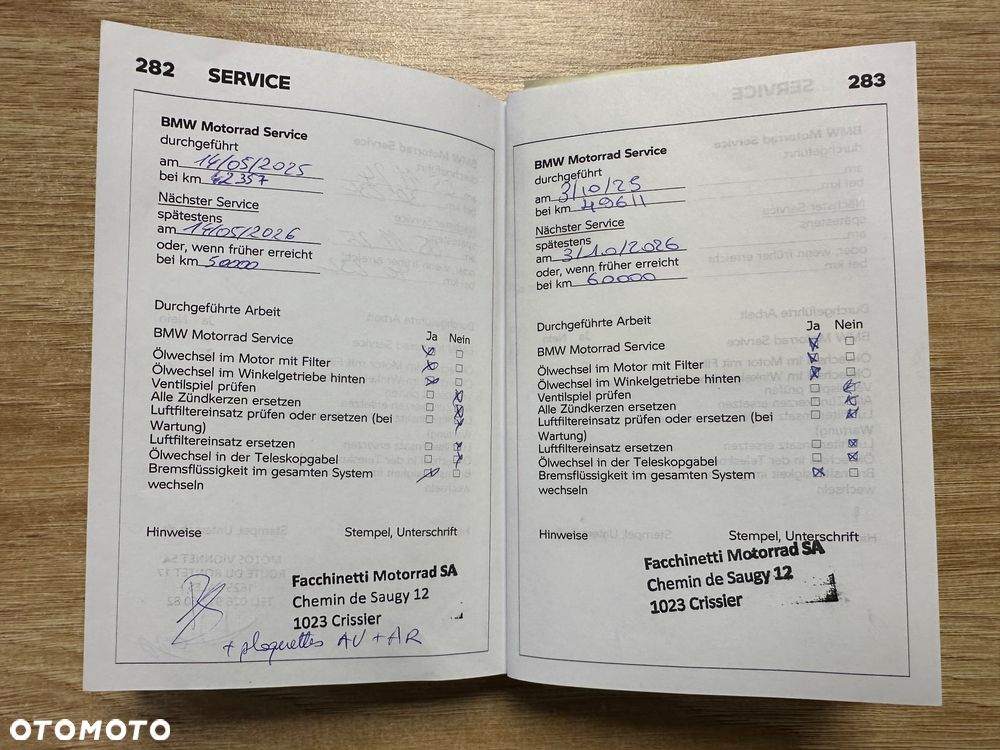 282 SERVICE
BMW Motorrad Service
durchgeführt
am 14/05/2025
bei km 42357
Nächster Service
spätestens
am 14/05/2026
oder, wenn früher erreicht
bei km 50000
Durchgeführte Arbeit
Ja Nein
BMW Motorrad Service
Ölwechsel im Motor mit Filter
Ölwechsel im Winkelgetriebe hinten
Ventilspiel prüfen
Alle Zündkerzen ersetzen
Luftfiltereinsatz prüfen oder ersetzen (bei
Wartung)
Luftfiltereinsatz ersetzen
Ölwechsel in der Teleskopgabel
Bremsflüssigkeit im gesamten System
wechseln
Hinweise Stempel, Unterschrift
Facchinetti Motorrad SA
Chemin de Saugy 12
1023 Crissier
+ plaquettes AV + AR
283
BMW Motorrad Service
durchgeführt
am 3/10/25
bei km 49611
Nächster Service
spätestens
am 3/10/2026
oder, wenn früher erreicht
bei km 60000
Durchgeführte Arbeit
Ja Nein
BMW Motorrad Service
Ölwechsel im Motor mit Filter
Ölwechsel im Winkelgetriebe hinten
Ventilspiel prüfen
Alle Zündkerzen ersetzen
Luftfiltereinsatz prüfen oder ersetzen (bei
Wartung)
Luftfiltereinsatz ersetzen
Ölwechsel in der Teleskopgabel
Bremsflüssigkeit im gesamten System
wechseln
Hinweise Stempel, Unterschrift
Facchinetti Motorrad SA
Chemin de Saugy 12
1023 Crissier
OTOMOTO